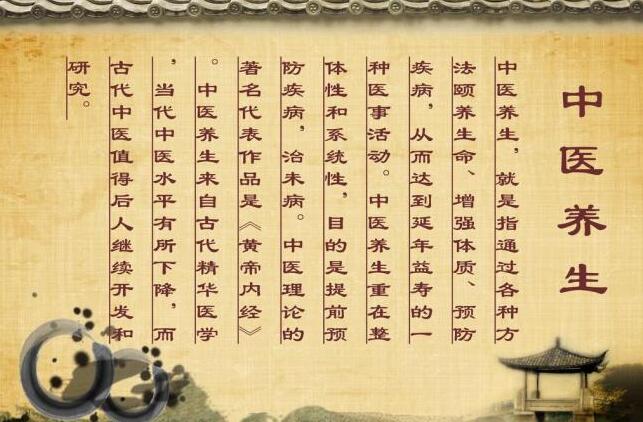 中医养生
中医养生，就是指通过各种方
法颐养生命、增强体质、预防
疾病，从而达到延年益寿的一
种医事活动。中医养生重在整
体性和系统性，目的是提前预
防疾病，治未病。中医理论的
著名代表作品是《黄帝内经》
。中医养生来自古代精华医学
，当代中医水平有所下降，而
古代中医值得后人继续开发和
研究。